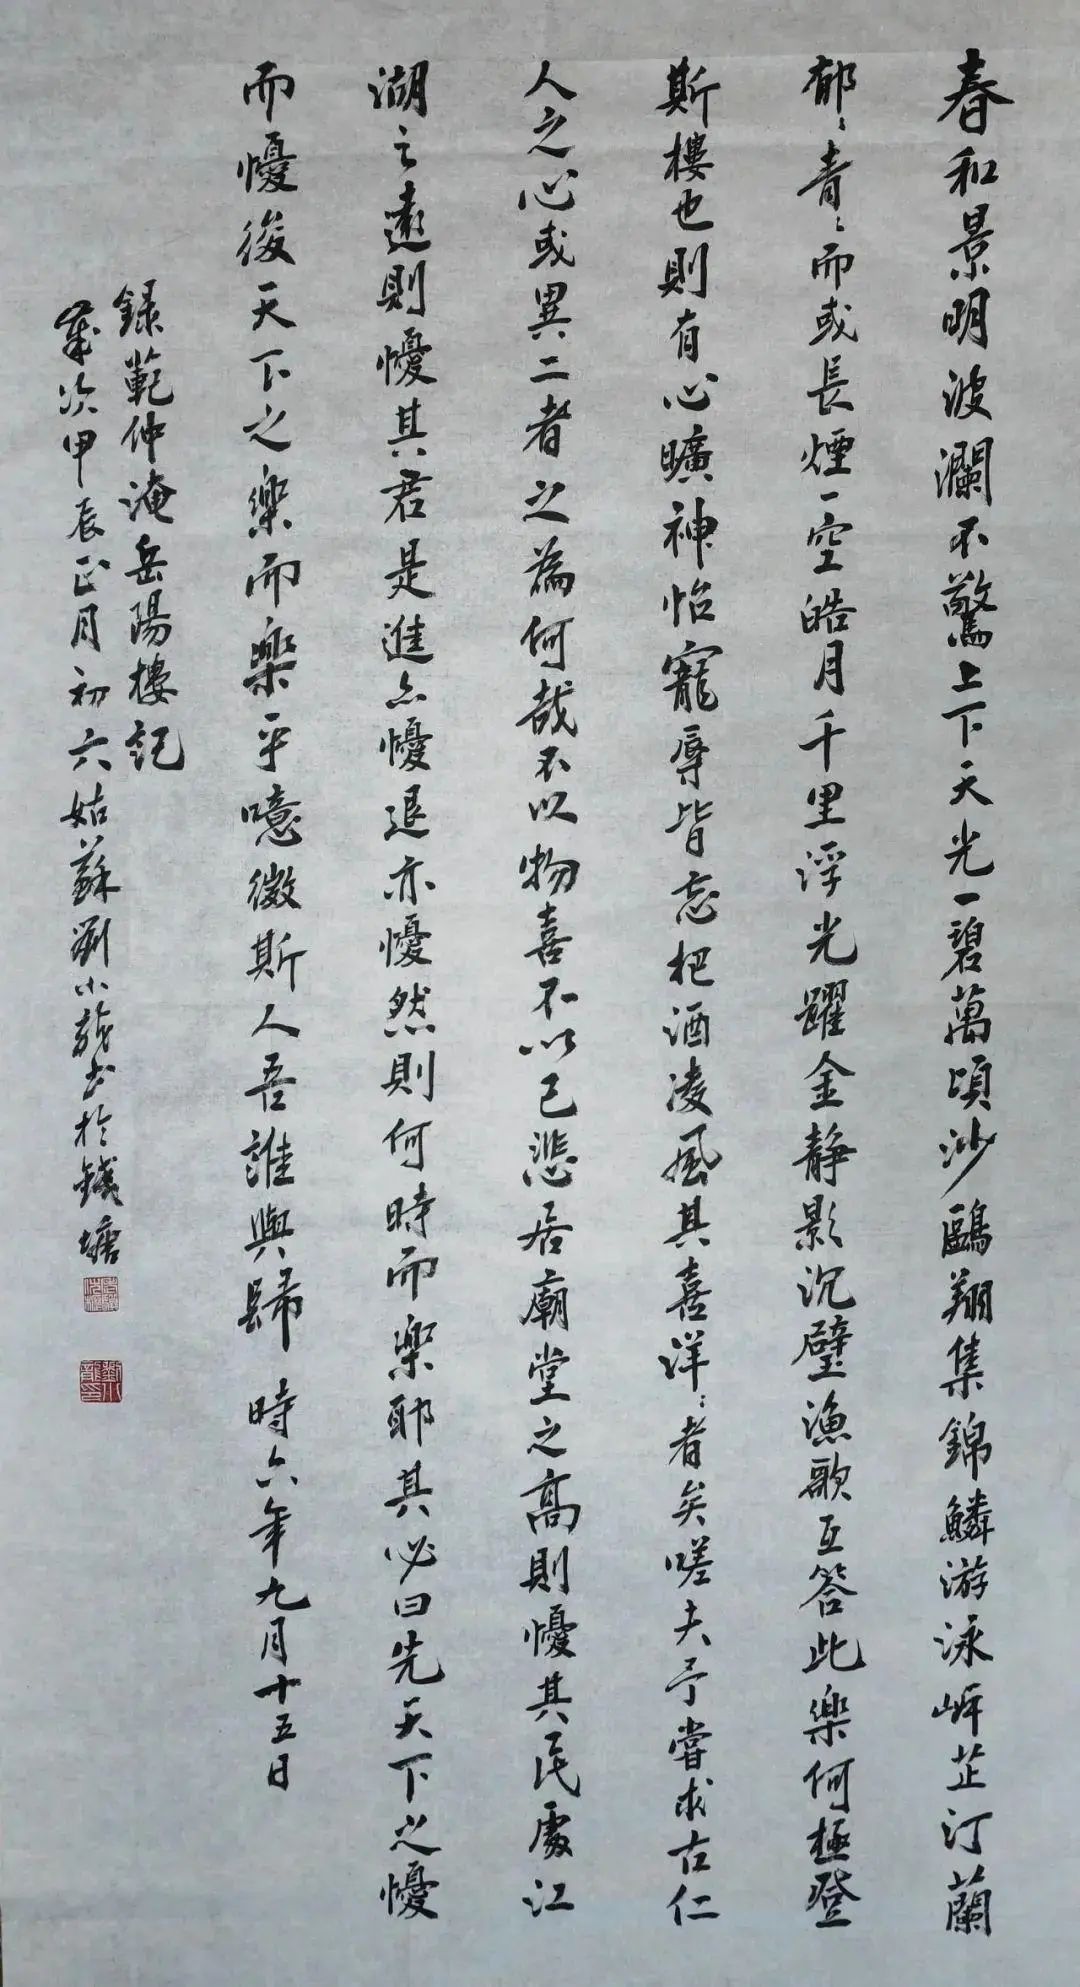 春和景明波瀾不驚上下天光一碧萬頃沙鷗翔集錦鱗游泳岸芷汀蘭
郁〻青〻而或長煙一空皓月千里浮光躍金静影沉璧漁歌互答此樂何極登
斯樓也則有心曠神怡寵辱皆忘把酒凌風其喜洋〻者矣嗟夫予嘗求古仁
人之心或異二者之為何哉不以物喜不以己悲居廟堂之高則懮其民處江
湖之遠則懮其君是進亦懮退亦懮然則何時而樂耶其必曰先天下之懮
而懮後天下之樂而樂乎噫微斯人吾誰與歸 時六年九月十五日
録範仲淹岳陽樓記
歲次甲辰正月初六姑蘇劉小龍書於錢塘
劉小龍印